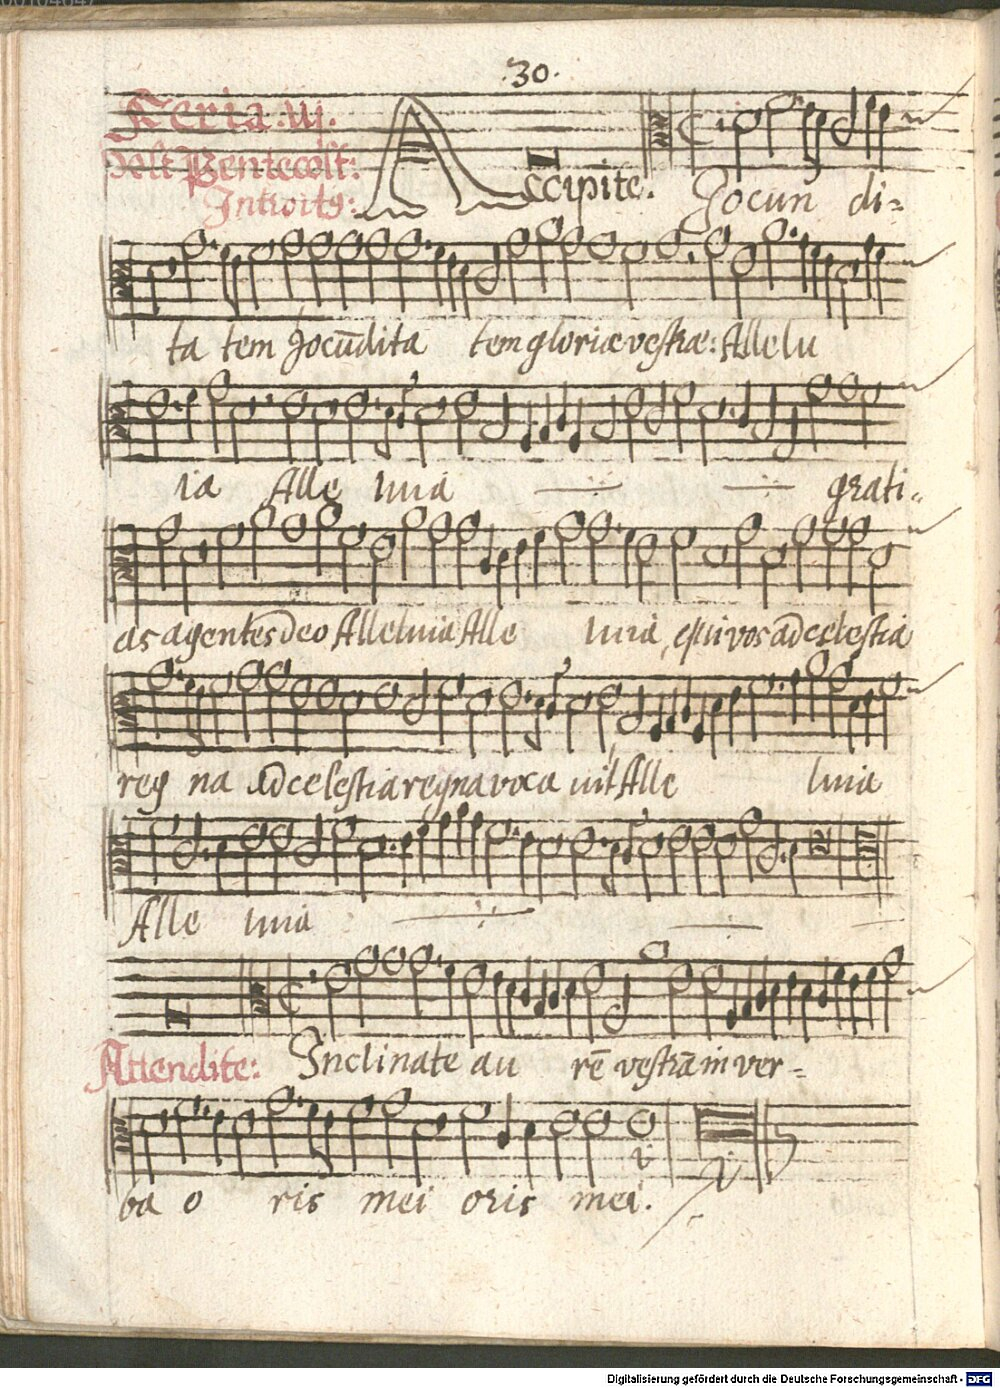 .30.
Feria .iij.
Post Pentecost:
Introitq:
Accipite. Jocun di=
ta tem Jocūdita tem gloriæ vestræ: Allelu
ia Alle luia grati=
as agentes deo Alleluia Alle luia, qui vos ad celestia
reg na ad celestia regna voca uit Alle luia
Alle luia
Attendite: Inclinate au rē vestrā in ver=
ba o ris mei oris mei.
Digitalisierung gefördert durch die Deutsche Forschungsgemeinschaft - DFG